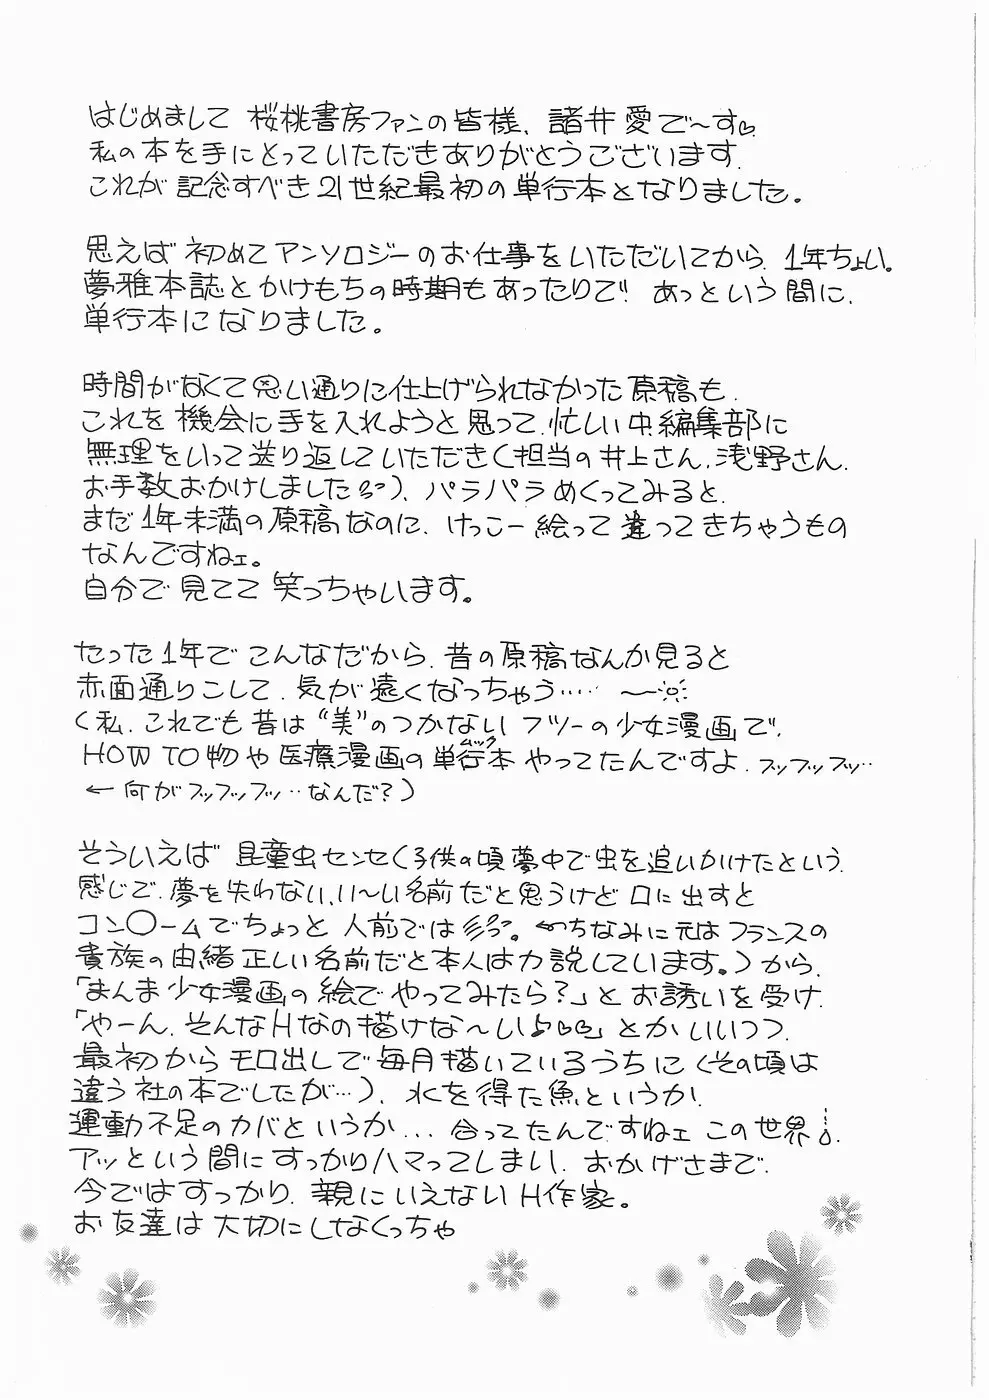 はじめまして 桜桃書房ファンの皆様、諸井愛で〜す♡
私の本を手にとっていただきありがとうございます。
これが記念すべき21世紀最初の単行本となりました。
思えば初めてアンソロジーのお仕事をいただいてから、1年ちょい。
夢雅本誌とかけもちの時期もあったりで、あっという間に、
単行本になりました。
時間がなくて思い通りに仕上げられなかった原稿も、
これを機会に手を入れようと思って、忙しい中、編集部に
無理をいって送り返していただき(担当の井上さん、浅野さん、
お手数おかけしました)、パラパラめくってみると、
まだ1年未満の原稿なのに、けっこー絵って違ってきちゃうもの
なんですねェ。
自分で見てて笑っちゃいます。
たった1年でこんなだから、昔の原稿なんか見ると
赤面通りこして、気が遠くなっちゃう‥‥‥
(私、これでも昔は“美”のつかないフツーの少女漫画で、
HOW TO物や医療漫画の単行本ムックやってたんですよ、フッフッフッ‥
←何がフッフッフッ‥なんだ?)
そういえば 昆童虫センセ(子供の頃夢中で虫を追いかけたという
感じで、夢を失わない、い〜い名前だと思うけど口に出すと
コン〇ームでちょっと人前では。←ちなみに元はフランスの
貴族の由緒正しい名前だと本人は力説しています。)から、
「まんま少女漫画の絵でやってみたら?」とお誘いを受け、
「やーん、そんなHなの描けな〜い♪♡♡」とかいいつつ、
最初からモロ出しで毎月描いているうちに(その頃は
違う社の本でしたが…)、水を得た魚というか、
運動不足のカバというか...合ってたんですねェ この世界。
アッという間にすっかりハマってしまい、おかげさまで、
今ではすっかり、親にいえないH作家。
お友達は大切にしなくっちゃ